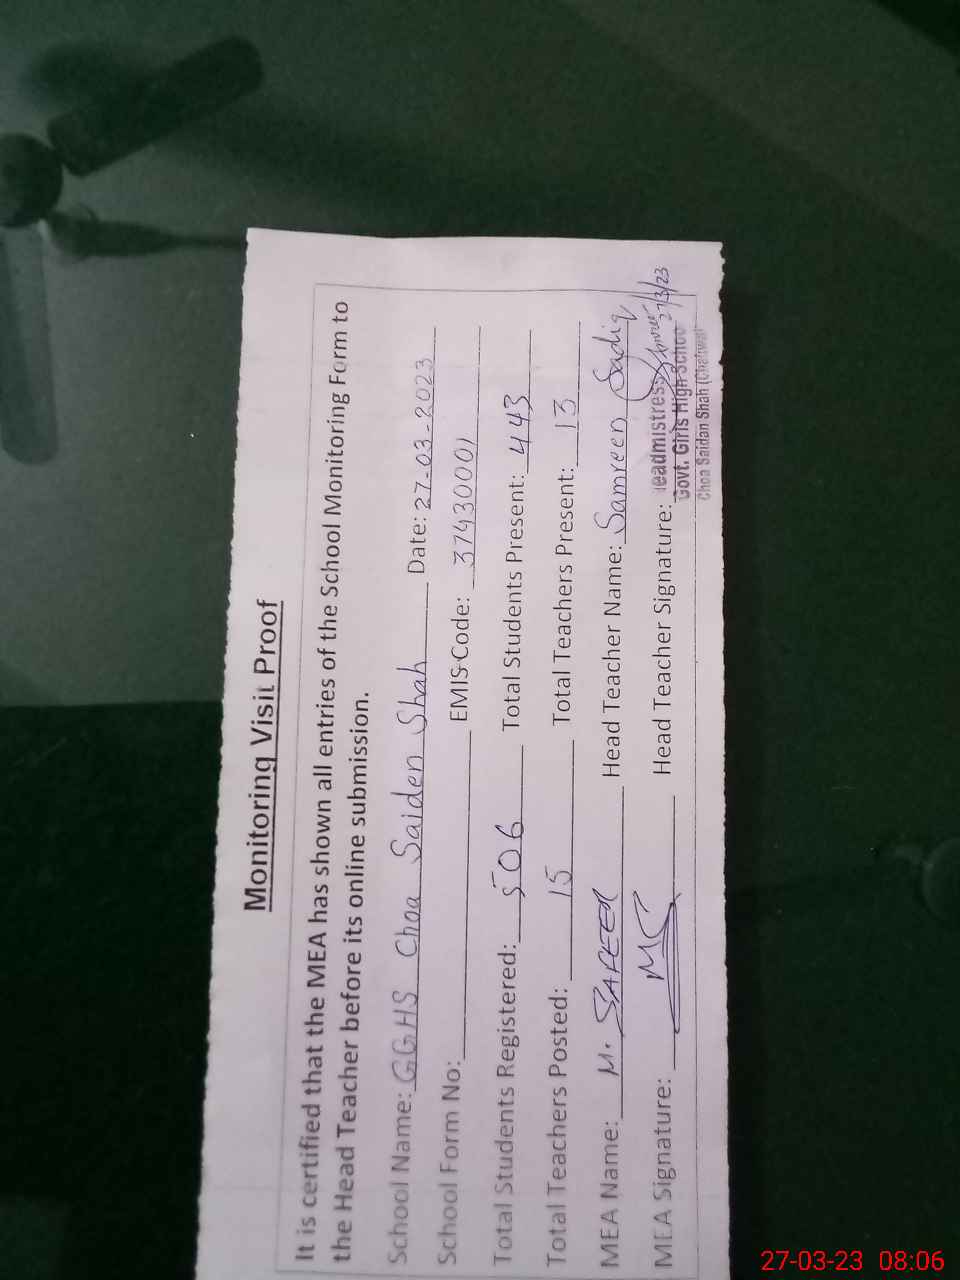 Monitoring Visit Proof
It is certified that the MEA has shown all entries of the School Monitoring Form to
the Head Teacher before its online submission.
School Name: GGHS Choa Saiden Shah Date: 27-03-2023
School Form No: EMIS Code: 37430001
Total Students Registered: 506 Total Students Present: 443
Total Teachers Posted: 15 Total Teachers Present: 13
MEA Name: M. SAFEER Head Teacher Name: Samreen Sadiq
MEA Signature: MS Head Teacher Signature:
27/3/23
eadmistress
Govt. Girls High School
Choa Saidan Shah (Chakwal)
27-03-23 08:06